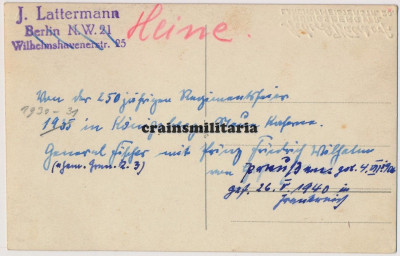 J. Lattermann
Berlin N.W. 21
Wilhelmshavenerstr. 25
Heine.
Von der 250 jährigen Regimentsfeier
1930-31
1935 in Königsberg Kaserne.
crainsmilitaria
General Fischer mit Prinz Friedrich Wilhelm
(ehem. Gren. R. 3) von Preußen
gef. 26. V. 1940 in
Frankreich